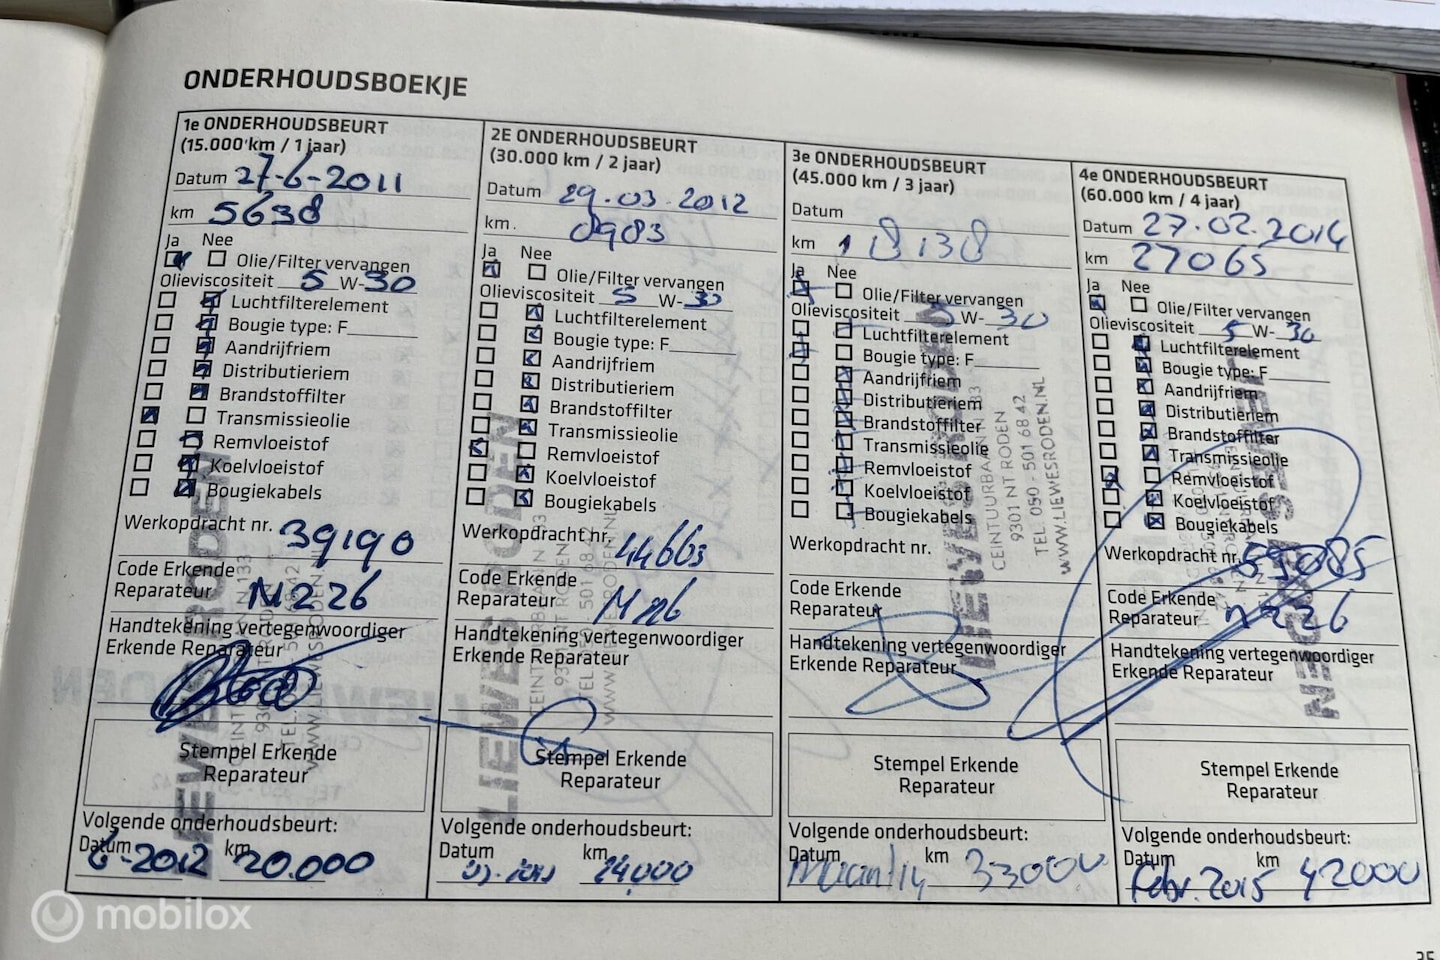 ONDERHOUDSBOEKJE
1e ONDERHOUDSBEURT
(15.000 km / 1 jaar)
Datum 27-6-2011
km 5638
Ja Nee
Olie/Filter vervangen
Olieviscositeit 5 W-30
Luchtfilterelement
Bougie type: F
Aandrijfriem
Distributieriem
Brandstoffilter
Transmissieolie
Remvloeistof
Koelvloeistof
Bougiekabels
Werkopdracht nr. 39190
Code Erkende
Reparateur N226
Handtekening vertegenwoordiger
Erkende Reparateur
Stempel Erkende
Reparateur
Volgende onderhoudsbeurt:
Datum km
6-2012 20.000
2E ONDERHOUDSBEURT
(30.000 km / 2 jaar)
Datum 29.03.2012
km. 0983
Ja Nee
Olie/Filter vervangen
Olieviscositeit 5 W-30
Luchtfilterelement
Bougie type: F
Aandrijfriem
Distributieriem
Brandstoffilter
Transmissieolie
Remvloeistof
Koelvloeistof
Bougiekabels
Werkopdracht nr. 44663
Code Erkende
Reparateur
Handtekening vertegenwoordiger
Erkende Reparateur
LIEWES RODEN
Stempel Erkende
Reparateur
Volgende onderhoudsbeurt:
Datum km
24,000
3e ONDERHOUDSBEURT
(45.000 km / 3 jaar)
Datum
km 18138
Ja Nee
Olie/Filter vervangen
Olieviscositeit 5 W-30
Luchtfilterelement
Bougie type: F
Aandrijfriem
Distributieriem
Brandstoffilter
Transmissieolie
Remvloeistof
Koelvloeistof
Bougiekabels
LIEWES RODEN
CEINTUURBAAN N 133
9301 NT RODEN
TEL. 050 - 501 68 42
WWW.LIEWESRODEN.NL
Werkopdracht nr.
Code Erkende
Reparateur
Handtekening vertegenwoordiger
Erkende Reparateur
Stempel Erkende
Reparateur
Volgende onderhoudsbeurt:
Datum km 33000
4e ONDERHOUDSBEURT
(60.000 km / 4 jaar)
Datum 27.02.2014
km 27065
Ja Nee
Olie/Filter vervangen
Olieviscositeit 5 W-30
Luchtfilterelement
Bougie type: F
Aandrijfriem
Distributieriem
Brandstoffilter
Transmissieolie
Remvloeistof
Koelvloeistof
Bougiekabels
Werkopdracht nr. 59085
Code Erkende
Reparateur N226
Handtekening vertegenwoordiger
Erkende Reparateur
Stempel Erkende
Reparateur
Volgende onderhoudsbeurt:
Datum km
Febr. 2015 42000
mobilox